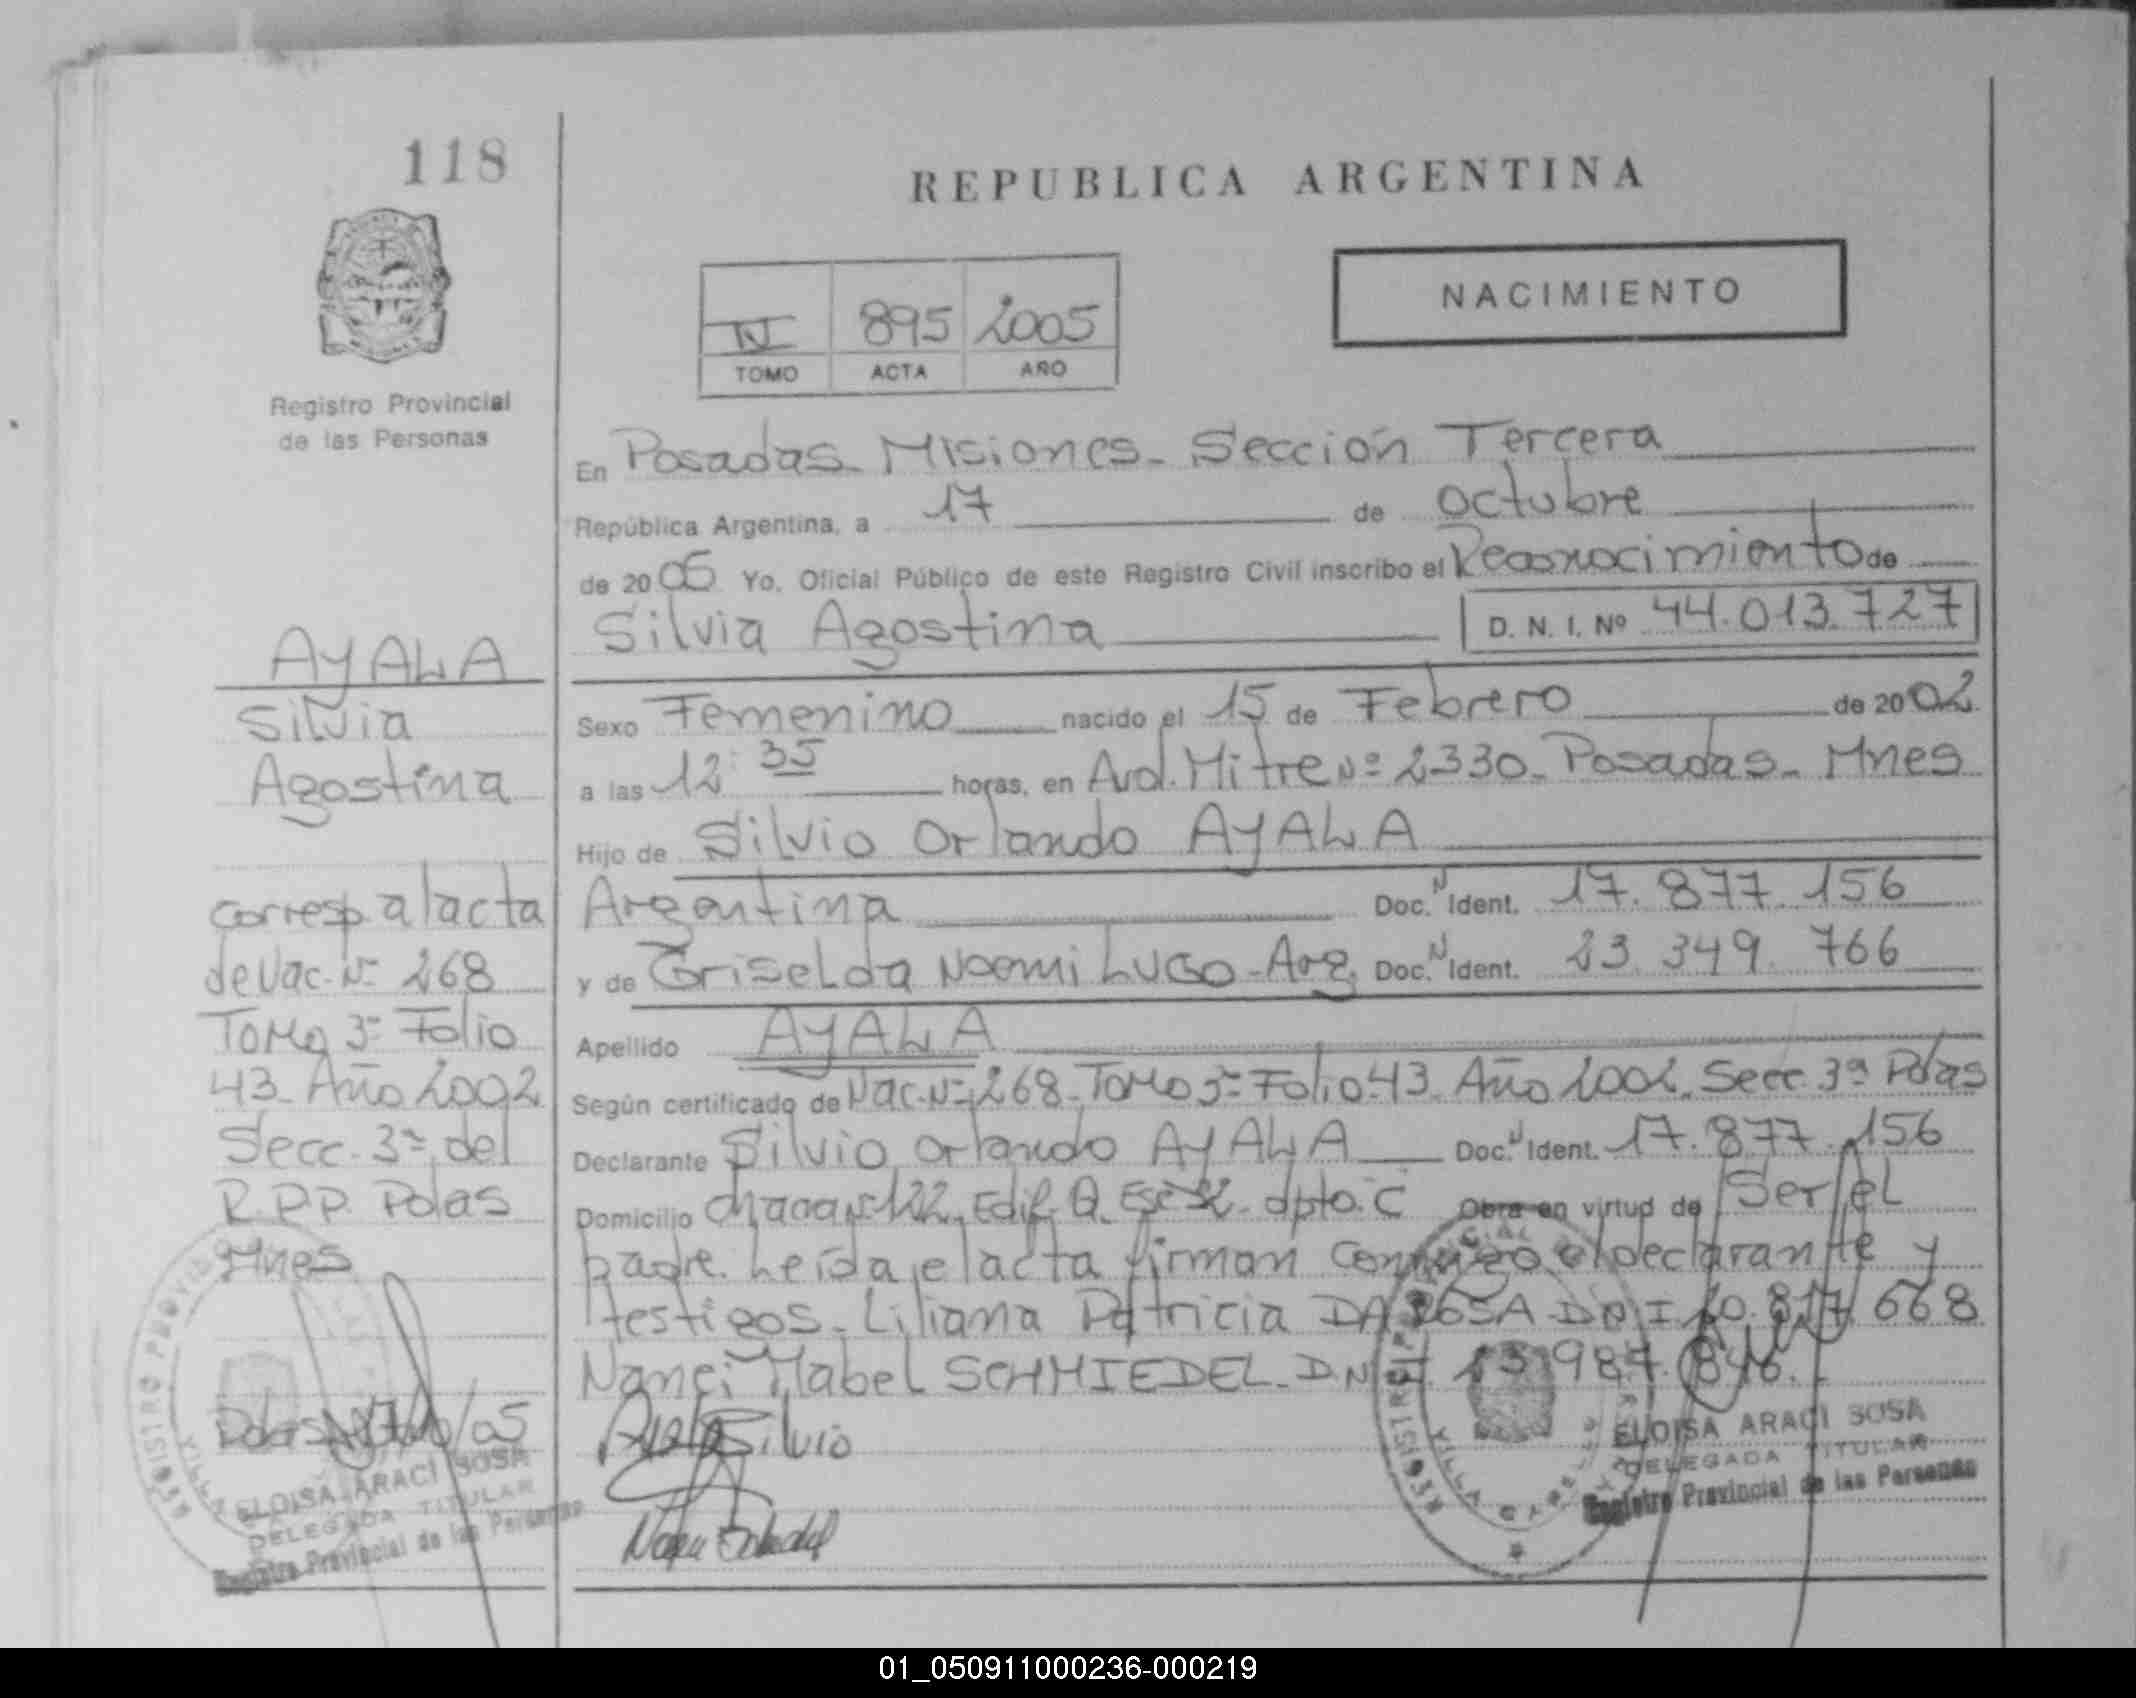 118
REPUBLICA ARGENTINA
NACIMIENTO
IV 895 2005
TOMO ACTA AÑO
Registro Provincial
de las Personas
En Posadas Misiones - Sección Tercera
República Argentina, a 17 de octubre
de 2005 Yo, Oficial Público de este Registro Civil inscribo el Reconocimiento de
Silvia Agostina D. N. I. Nº 44.013.727
Sexo Femenino nacido el 15 de Febrero de 2002
a las 12 35 horas, en Avd. Mitre Nº 2330 - Posadas - Mnes
Hijo de Silvio Orlando AYALA
Argentina Doc. N Ident. 17.877.156
y de Griselda Noemi LUGO - Arg. Doc. N Ident. 23.349.766
Apellido AYALA
Según certificado de Nac. Nº 268 - Tomo 3º Folio 43 - Año 2002 - Secc. 3ª Pdas
Declarante Silvio Orlando AYALA Doc. N Ident. 17.877.156
Domicilio chacra 122, Edif. Q. Esc. dpto. C Obra en virtud de Ser el
padre. Leída el acta firman conmigo el declarante y
testigos - Liliana Patricia DA ROSA D N I 20.817.668
Nanci Mabel SCHMIEDEL - D N I. 13.987.846.
Ayala Silvio
AYALA
Silvia
Agostina
corresp al acta
de Nac. Nº 268
Tomo 3º Folio
43 - Año 2002
Secc. 3ª del
R.P.P. Pdas
Mnes
Pdas 17/10/05
ELOISA ARACI SOSA
DELEGADA TITULAR
Registro Provincial de las Personas
ELOISA ARACI SOSA
DELEGADA TITULAR
Registro Provincial de las Personas
01_050911000236-000219